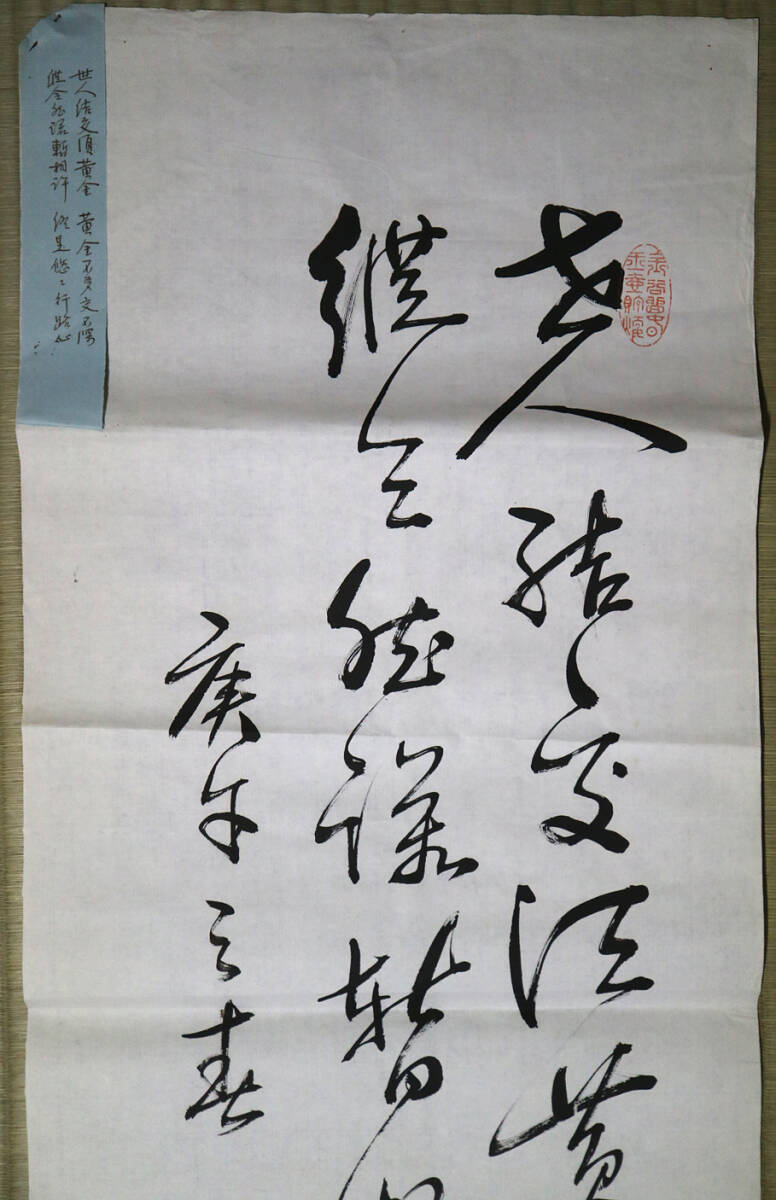 世人結交須黄
縦令然諾暫
庚午之春
世人結交須黄金 黄金不多交不深
縦令然諾暫相許 終是悠々行路心